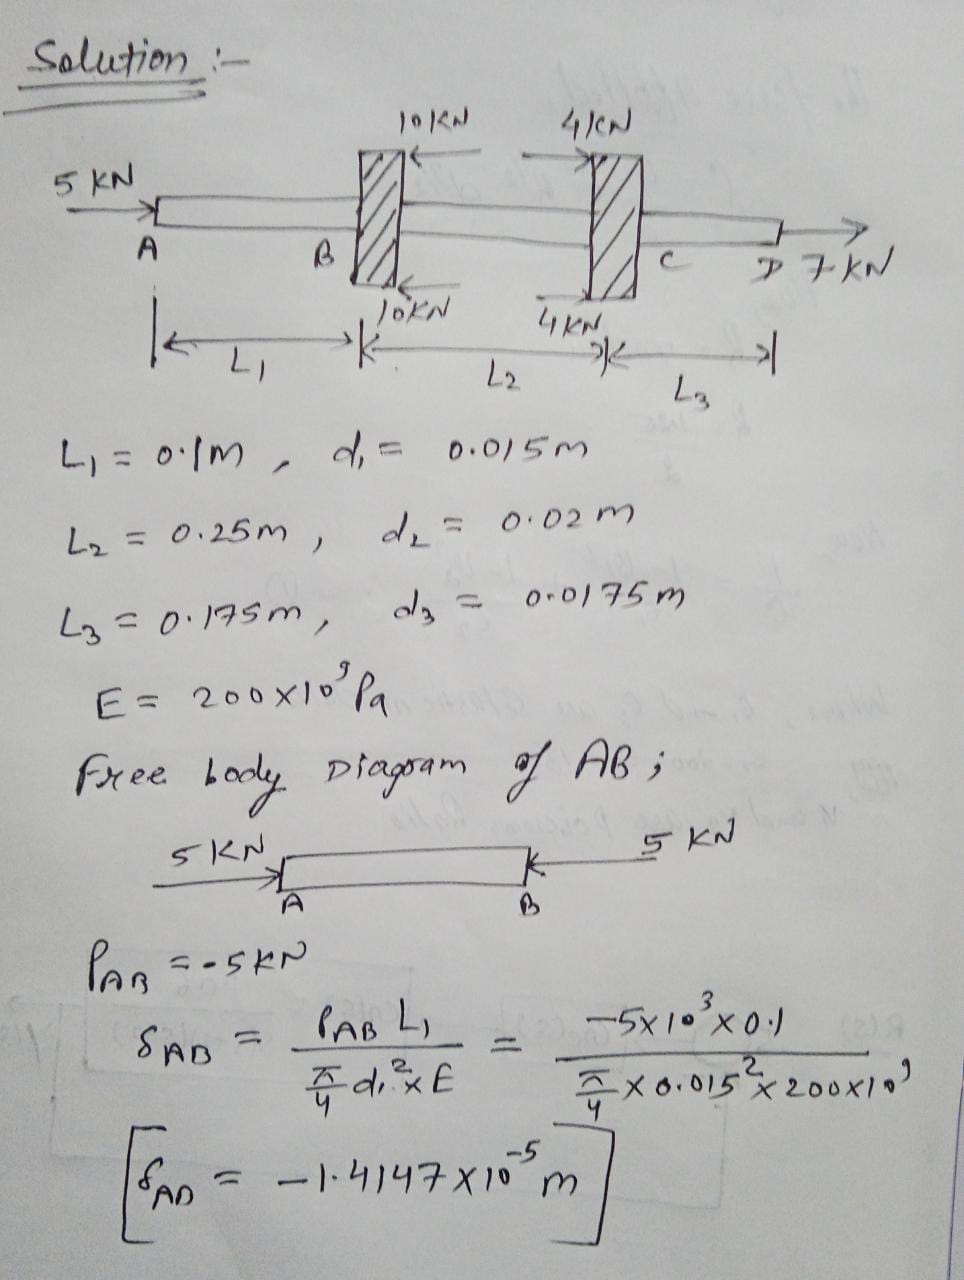 Solution :-
10 KN 4 KN
5 KN
A B C D 7 KN
10 KN 4 KN
L1 L2 L3
L1 = 0.1m , d1 = 0.015m
L2 = 0.25m , d2 = 0.02 m
L3 = 0.175m , d3 = 0.0175m
E = 200×10⁹ Pa
Free body Diagram of AB ;
5 KN 5 KN
A B
PAB = -5KN
δAB = PAB L1 / (π/4 d1² × E) = -5×10³×0.1 / (π/4 × 0.015² × 200×10⁹)
[δAB = -1.4147 × 10⁻⁵ m]